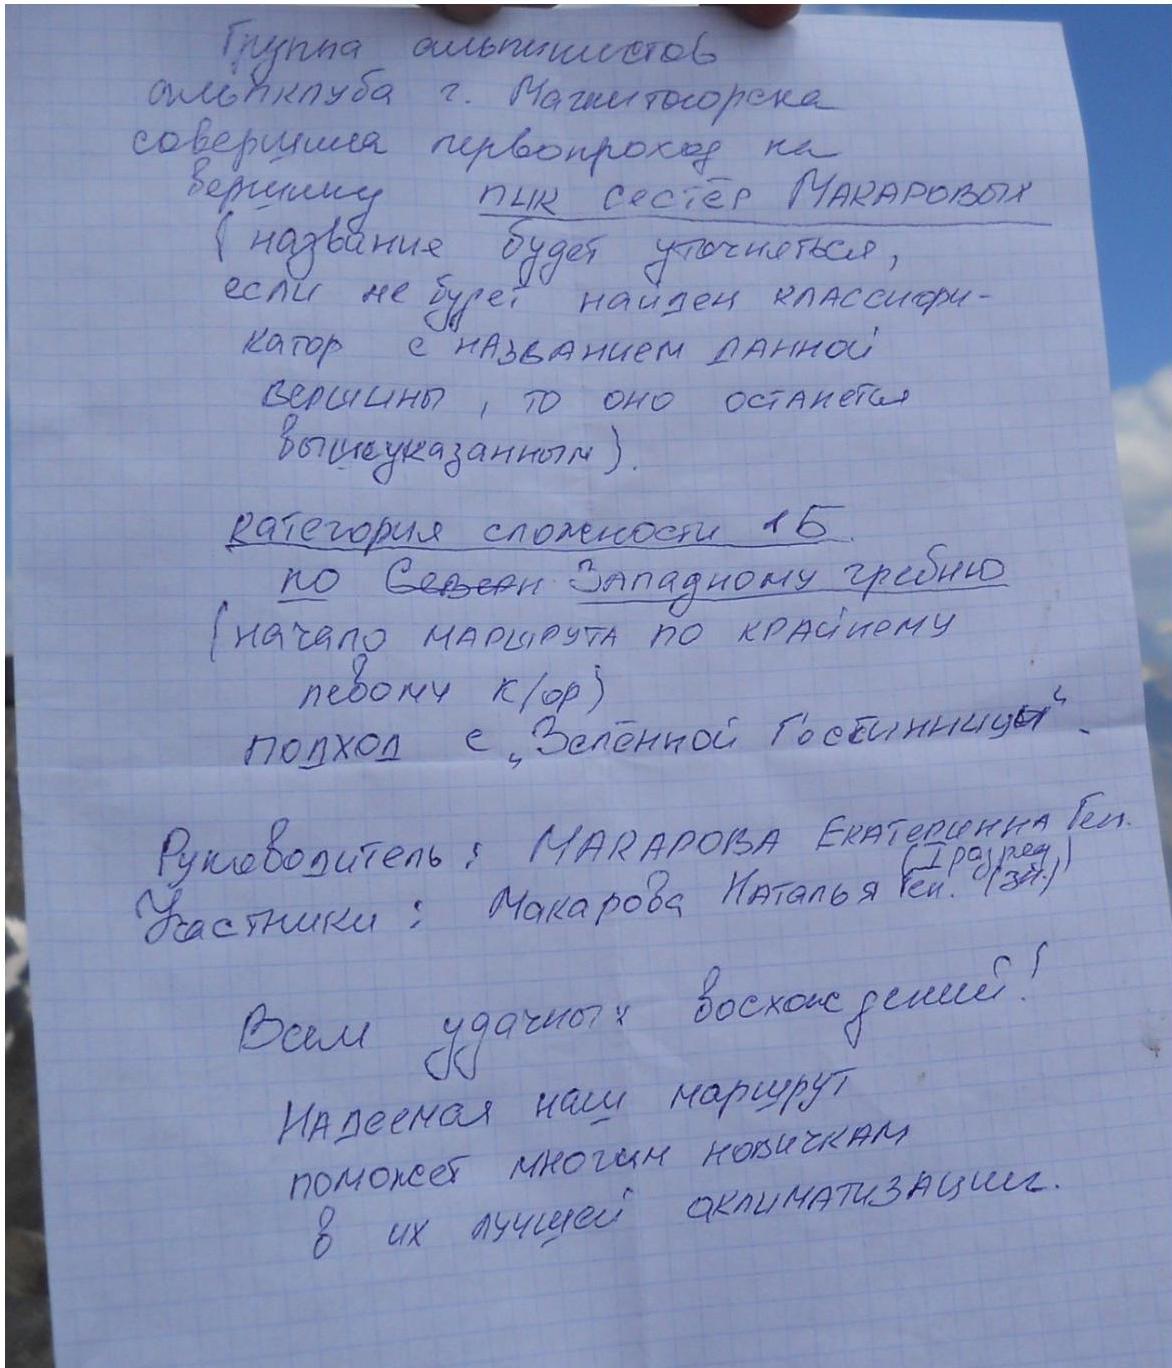 Группа альпинистов
альпклуба г. Магнитогорска
совершила первопроход на
вершину пик сестёр Макаровых
(название будет уточняться,
если не будет найден классифи-
катор с названием данной
вершины, то оно останется
вышеуказанным).
Категория сложности 1Б
по Западному гребню
(начало маршрута по крайнему
левому к/ор)
подход с „Зелённой Гостинницы“.
Руководитель: Макарова Екатеринна Ген.
(I разряд)
Участники: Макарова Наталья Ген. (зн.)
Всем удачных восхождений!
Надеемся наш маршрут
поможет многим новичкам
в их лучшей аклиматизации.